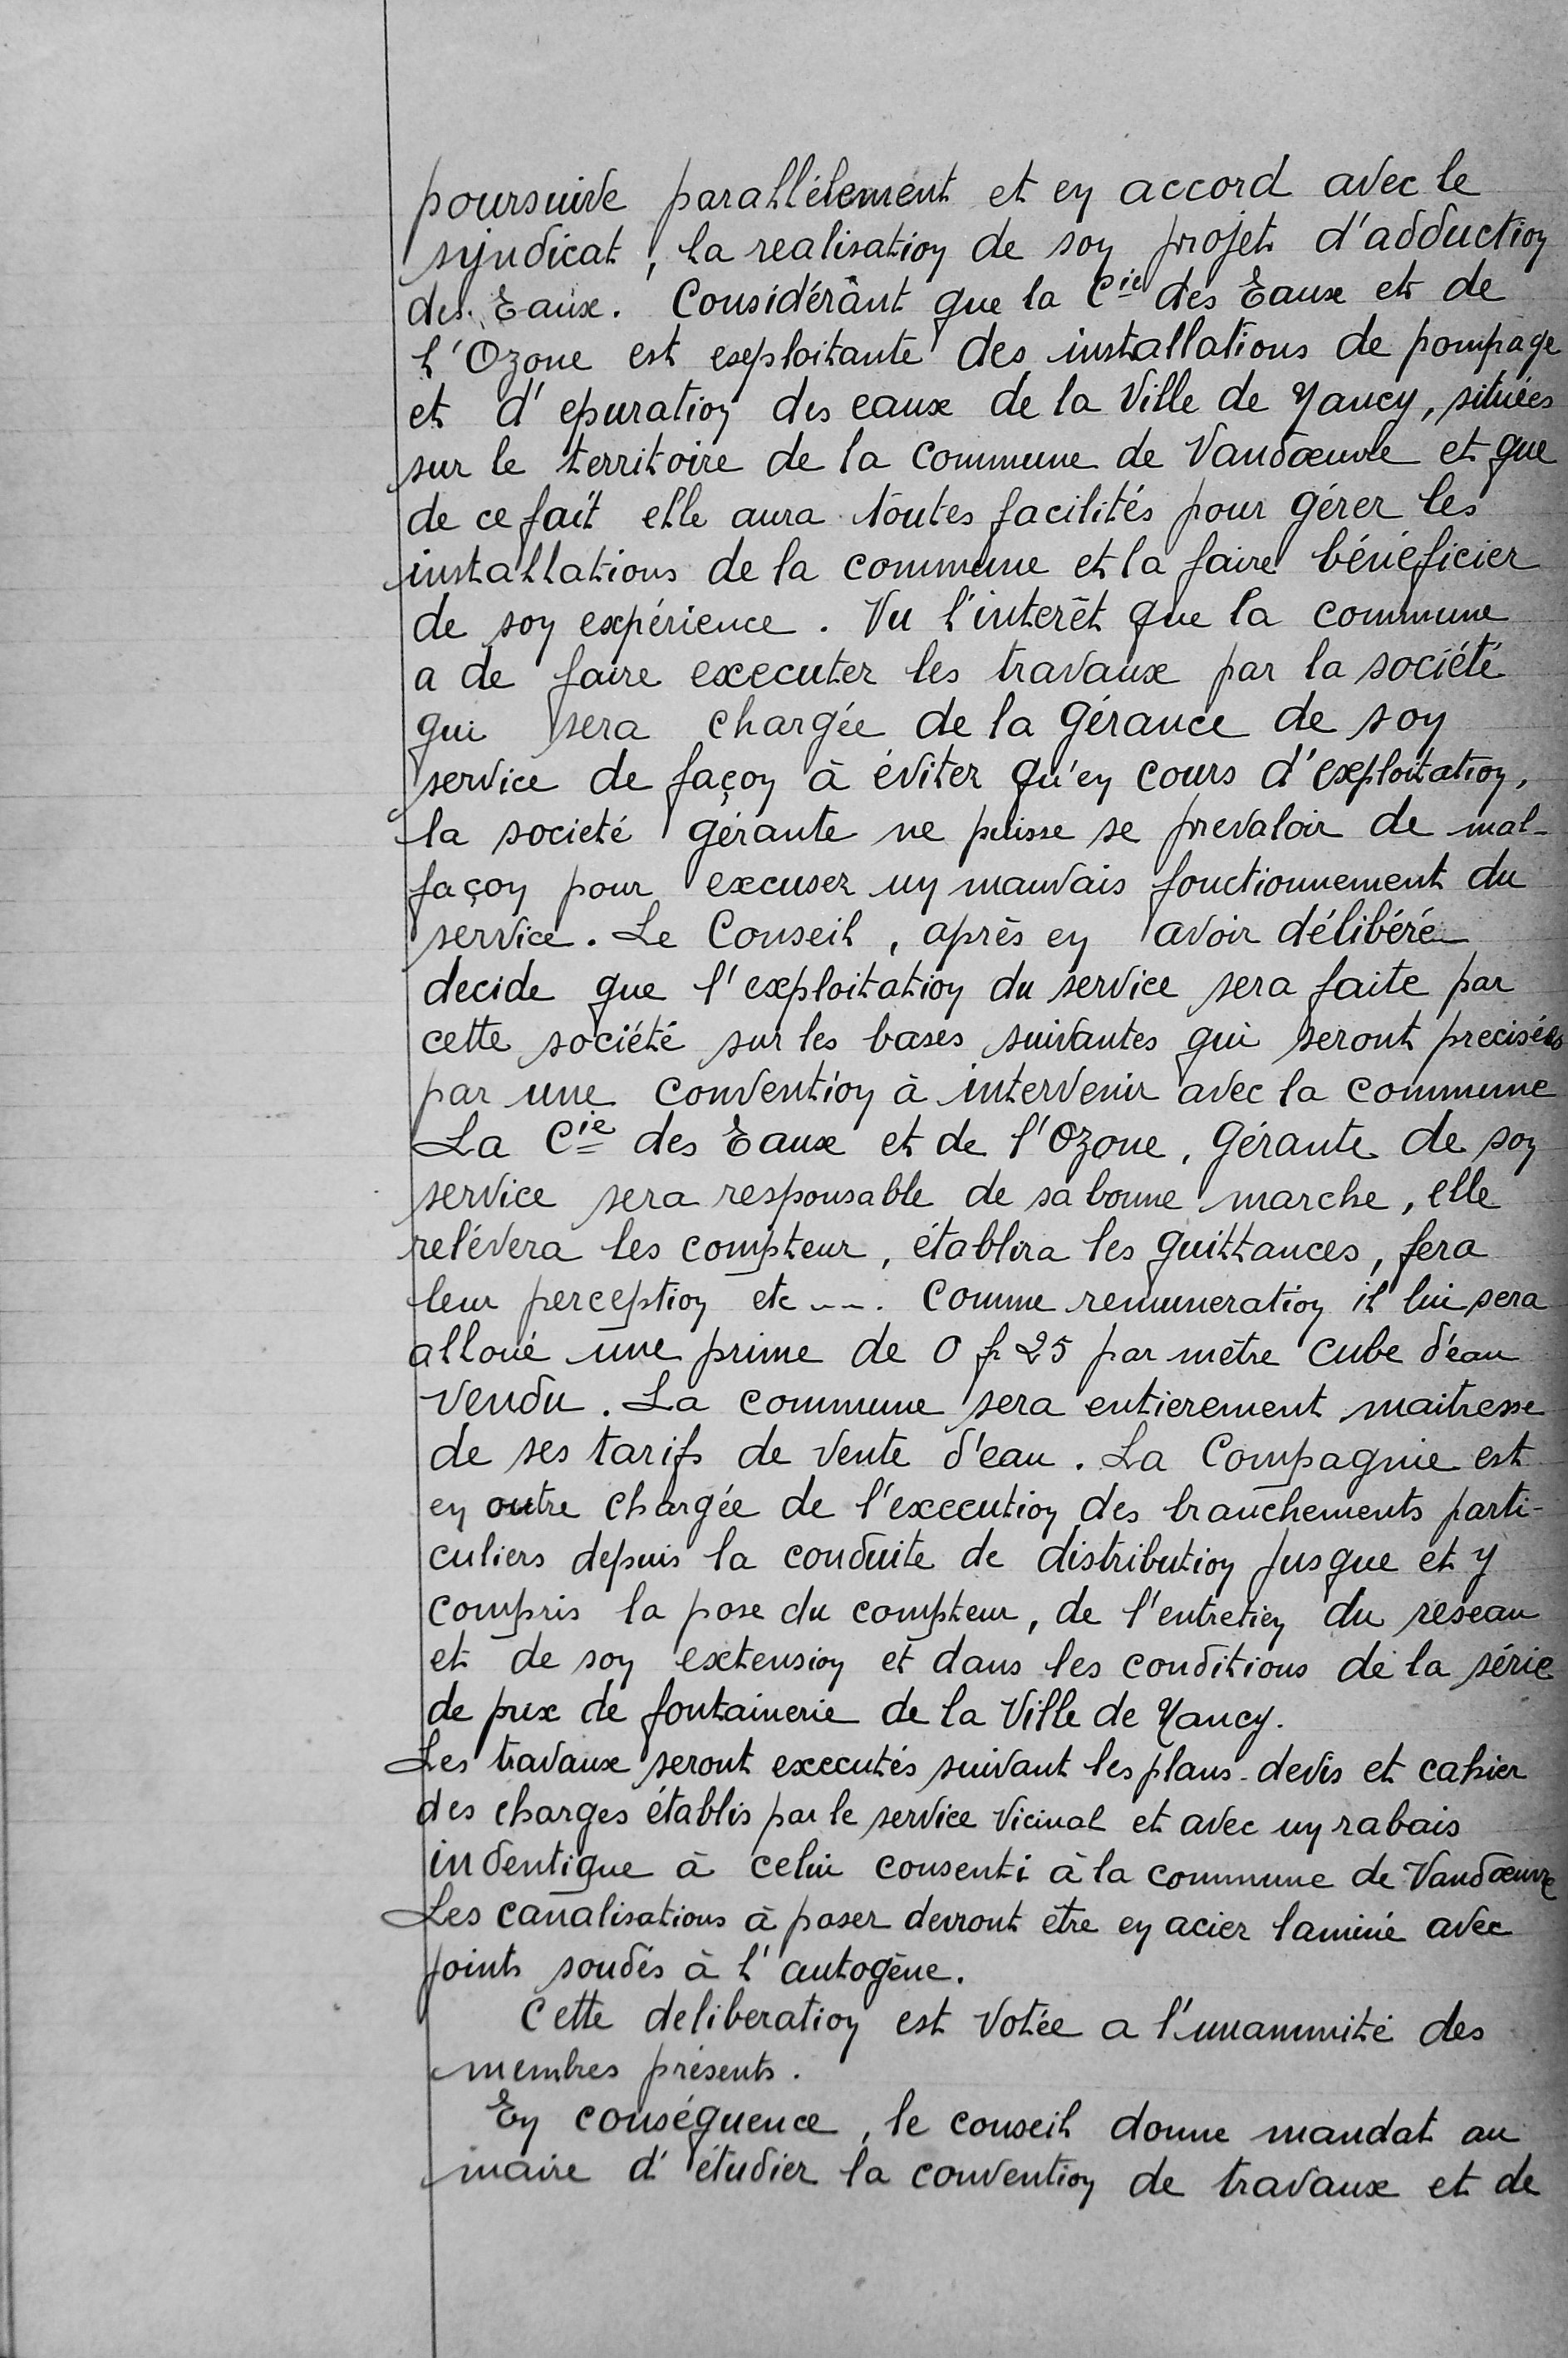 poursuive parallèlement et en accord avec le
syndicat, la realisation de son projet d'adduction
des Eaux. Considérant que la Cie des Eaux et de
l'Ozone est exploitante des installations de pompage
et d'epuration des eaux de la Ville de Nancy, situées
sur le territoire de la commune de Vandœuvre et que
de ce fait elle aura toutes facilités pour gérer les
installations de la commune et la faire bénéficier
de son expérience. Vu l'interêt que la commune
a de faire executer les travaux par la société
qui sera chargée de la gérance de son
service de façon à éviter qu'en cours d'exploitation,
la societé gérante ne puisse se prevaloir de mal-
façon pour excuser un mauvais fonctionnement du
service. Le Conseil, après en avoir délibéré
decide que l'exploitation du service sera faite par
cette société sur les bases suivantes qui seront precisées
par une convention à intervenir avec la commune
La Cie des Eaux et de l'Ozone, Gérante de son
service sera responsable de sa bonne marche, elle
relévera les compteur, établira les quittances, fera
leur perception etc ---. Comme remuneration il lui sera
alloué une prime de 0 f 25 par mètre cube d'eau
vendu. La commune sera entierement maitresse
de ses tarifs de vente d'eau. La Compagnie est
en outre chargée de l'execution des branchements parti-
culiers depuis la conduite de distribution jusque et y
compris la pose du compteur, de l'entretien du reseau
et de son extension et dans les conditions de la série
de prix de fontainerie de la Ville de Nancy.
Les travaux seront executés suivant les plans-devis et cahier
des charges établis par le service vicinal et avec un rabais
indentique à celui consenti à la commune de Vandœuvre
Les canalisations à poser devront être en acier laminé avec
joints soudés à l'autogène.
Cette deliberation est votée a l'unanimité des
membres présents.
En conséquence, le conseil donne mandat au
maire d'étudier la convention de travaux et de